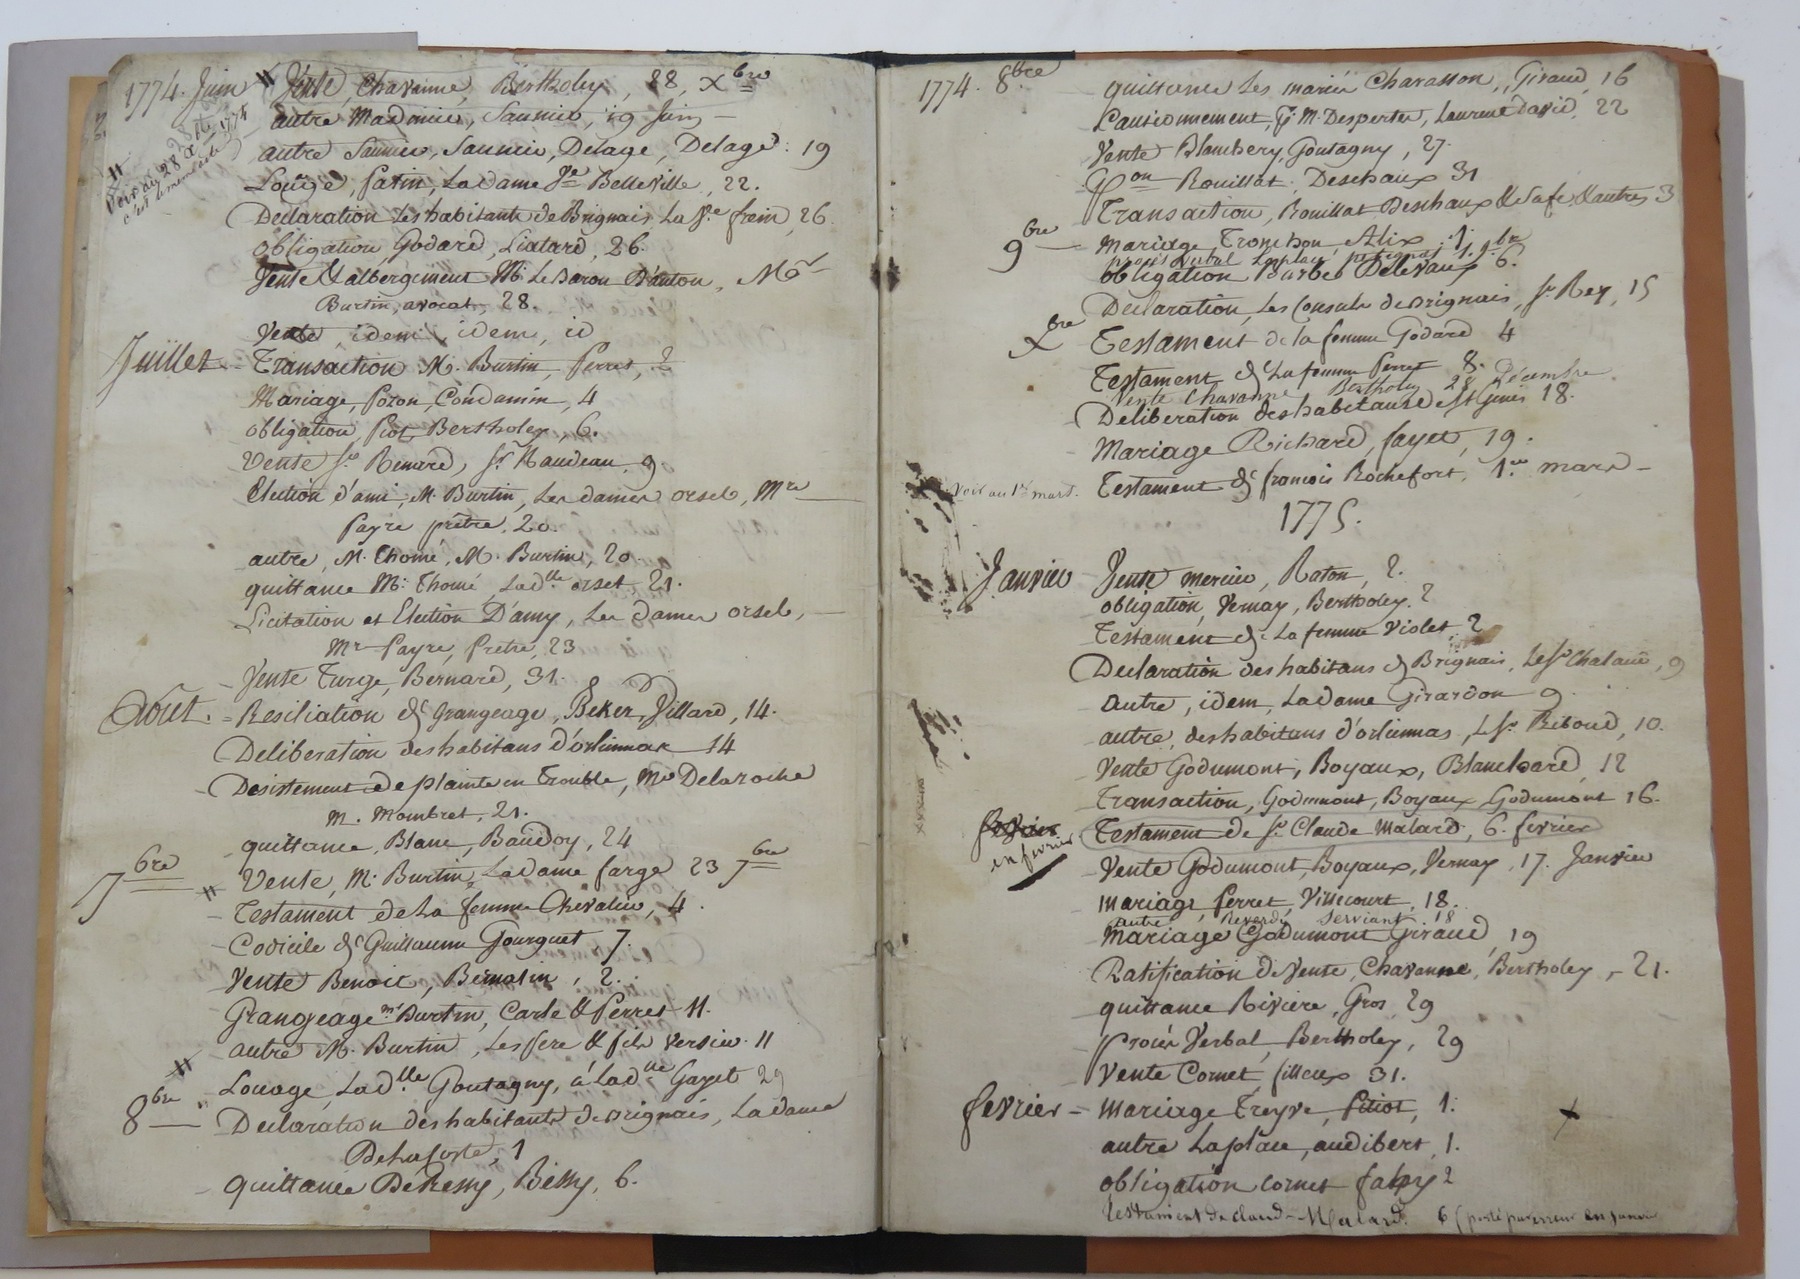 1774. Juin Vente, Chavanne, Bertholey, 28, Xbre
autre Saunier, 19 Juin
autre Saunier, Saunier, Delage, Delage. 19
Louage, fatin, La dame Ve Belleville, 22.
Voir au 28 Xbre 1774
Declaration Les habitants de Brignais La Ve frein, 26.
obligation, Godard, Liatard, 26.
Vente & albergement Mr Le Baron D'anton, Mr
Burtin, avocat, 28.
Vente, idem, idem, id
Juillet - Transaction M. Burtin, Perret, 2
Mariage, Pozon, Condamin, 4
obligation, Piot, Bertholey, 6.
Vente Sr Renard, Sr Naudeau, 9
Election d'ami, M. Burtin, Les dames orsel, Mre
Payre prêtre, 20.
autre, M. Thomé, M. Burtin, 20.
quittance Mr Thomé, La dlle orset 21.
Licitation et Election D'amy, Les dames orsel,
Mr Payre, Prêtre, 23
Vente Turge, Bernard, 31.
Aout. = Resiliation de grangeage, Beker, Villard, 14.
Deliberation des habitans d'orliennas 14
Desistement de plainte en Trouble, Me Delaroche
M. Mombret, 21.
quittance, Blanc, Baudoy, 24
7bre Vente, M. Burtin, La dame farge 23 7bre
Testament de La femme Chevalier, 4.
Codicile de Guillaume Gourguet 7.
Vente Benoit, 2.
Grangeage Mr Burtin, Carle & Perret 11.
autre M. Burtin, Les Pere & fils Versieu. 11
Louage, La dlle Goutagny, à La dlle Gayet 29
8bre Declaration des habitants de Brignais, La dame
De La coste, 1
quittance De Remy, Bessy, 6.
1774. 8bre quittance Les mariés Charasson, Giraud, 16
Cautionnement, Desperter, Laurent david, 22
Vente Blanchery, Goutagny, 27.
Rouillat Deschaux 31
Transaction, Rouillat Deschaux & autres 3
9bre Mariage, Tronchon Alix, 1.
procès verbal 1. 9bre
obligation Barbet Delevaux 6.
Declaration, Les Consuls de Brignais, Sr Rey, 15
Xbre Testament de la femme Godard 4
Testament de La femme Perret 8.
Vente Chavanne Bertholey 28 Décembre
Deliberation des habitans de St Genis 18.
Mariage Richard, fayet, 19.
Voir au 1er mars. Testament de francois Rochefort, 1er mars
1775.
Janvier Vente mercier, Raton, 2.
obligation, Vernay, Bertholey. 2
Testament de La femme Violet, 2
Declaration des habitans de Brignais, Le Sr Chalanc, 9
autre, idem, La dame Girardon 9.
autre, des habitans d'orliennas, Le Sr Riboud, 10.
Vente Godumont, Boyaux, Blanchard, 12
Transaction, Godumont, Boyaux, Godumont 16.
fevrier Testament de Sr Claude Malard, 6. fevrier
en fevrier
Vente Godumont, Boyaux, Vernay, 17. Janvier
mariage ferret, Villecourt, 18.
autre Reverdy Serviant 18
Mariage Godumont Giraud, 19
Ratification de Vente, Chavanne, Bertholey, 21.
quittance Riviere, Gros, 29
Procès Verbal, Bertholey, 29
Vente Cornet filleux 31.
fevrier - Mariage Treyve, Pitiot, 1.
autre Laplace, audibert, 1.
obligation cornet fahy 2
Testament de claude Malard. 6 (porté par erreur en janvier